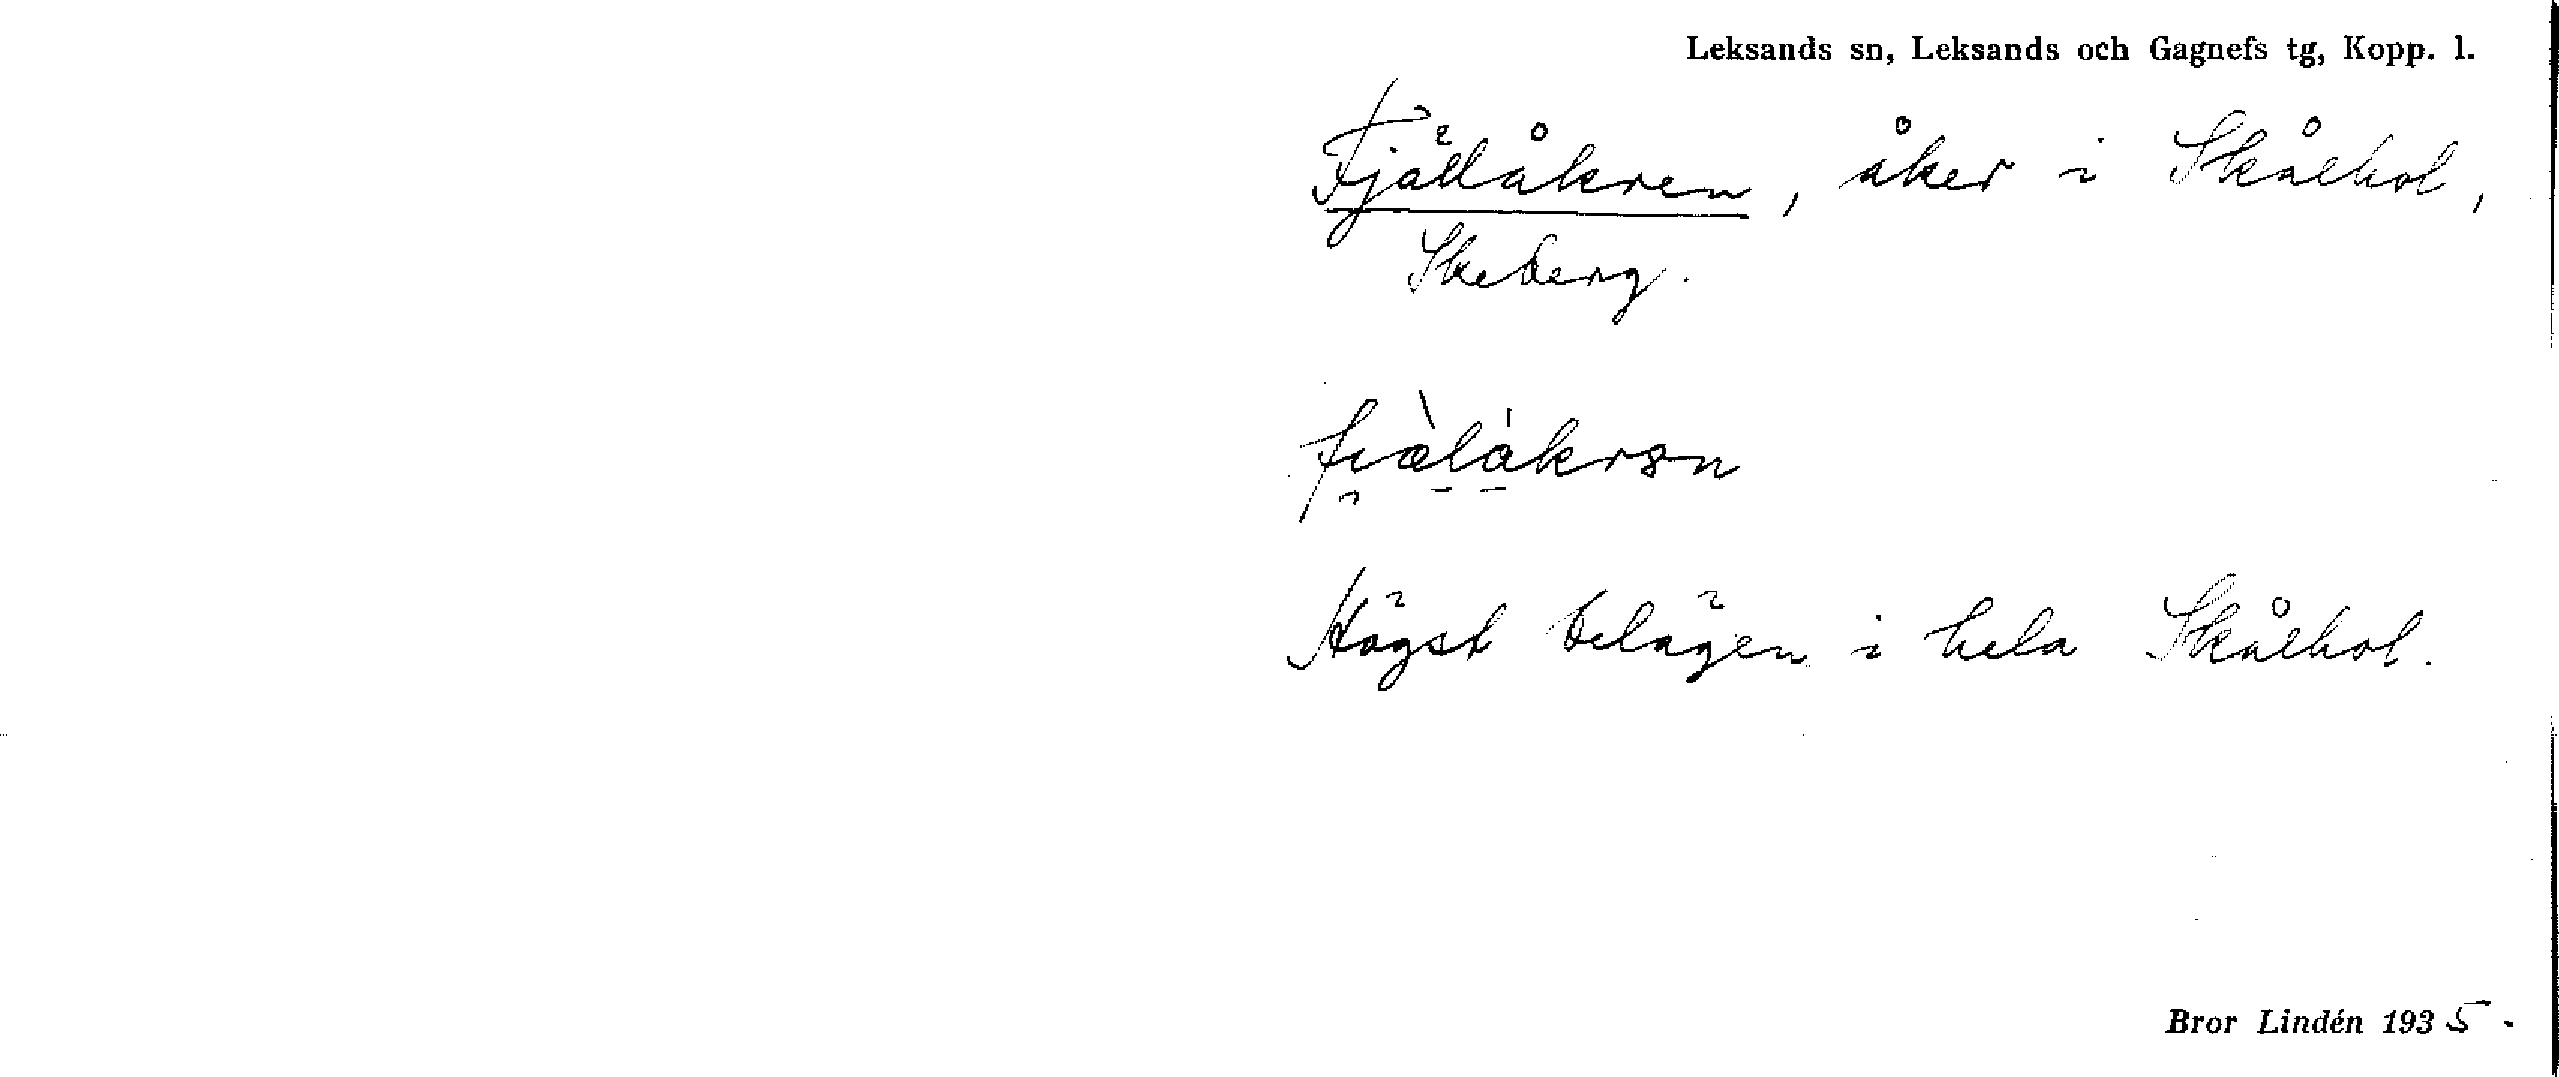 Leksands sn, Leksands och Gagnefs tg, Kopp. l.
Fjällåkren, åker i Skålhol,
Skeberg.
Högst belägen i hela Skålhol.
Bror Lindén 1935.